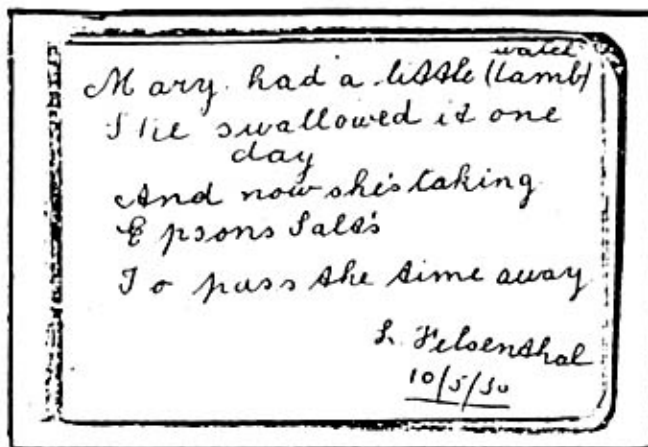 watch
Mary had a little (lamb)
She swallowed it one
day
And now she's taking
Epsons Salts
To pass the time away
L. Felsenthal
10/5/30